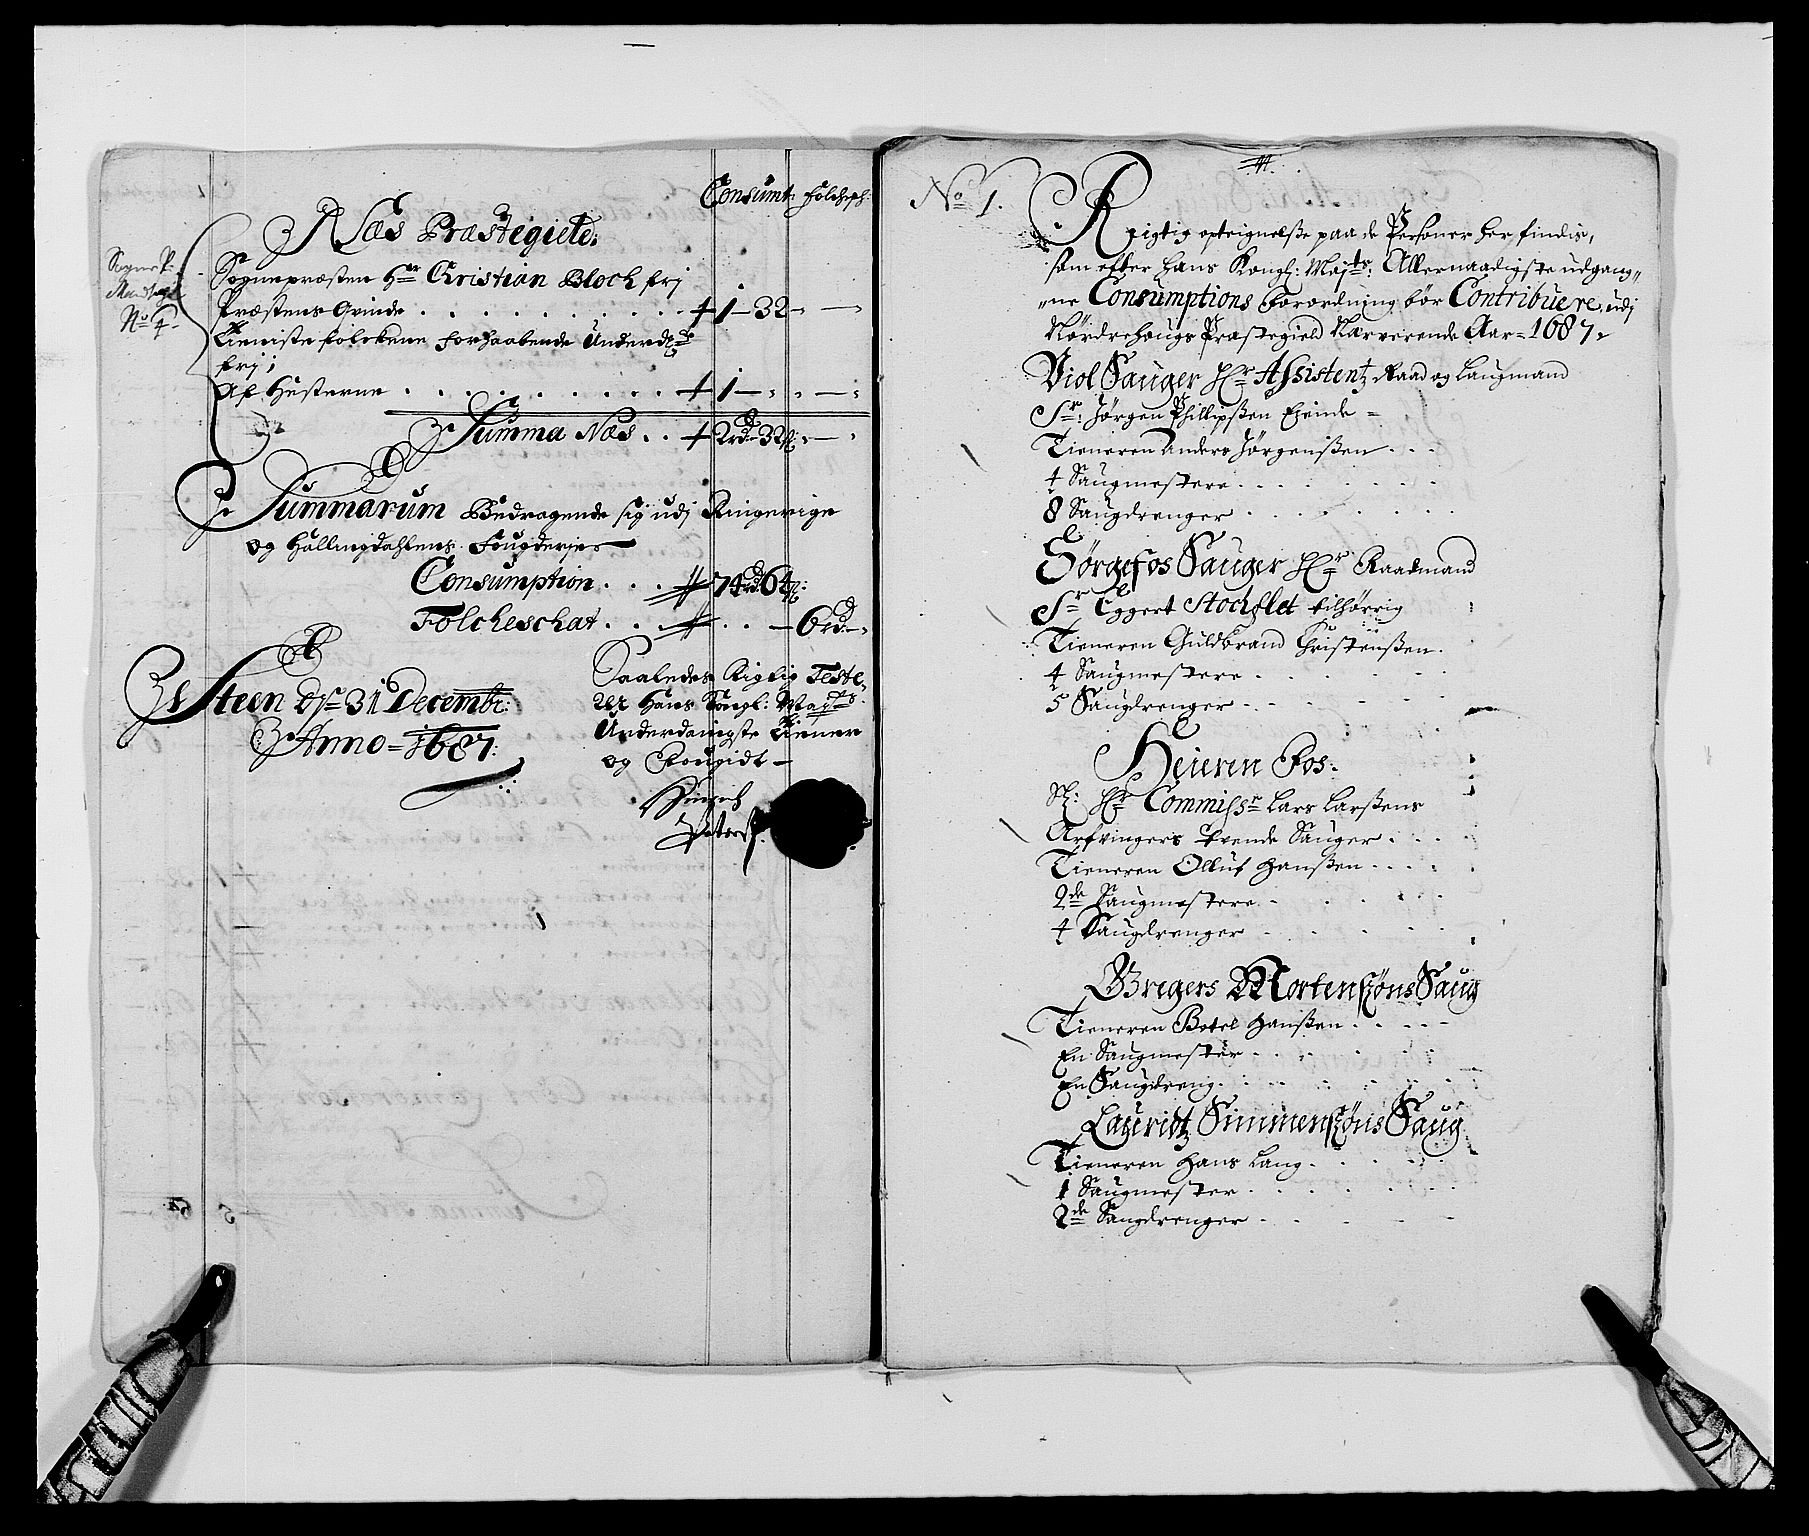 Consumt: Folchsch:
Næs Præstegield:
Sogne P:
Mandtagl
No 4
Sognepræsten Hr Christian Bloch fri
Præstens Qvinde . . . . . . . . . . 1 - 32 - -
Tieniste folckene forhaabende Underd:
fri;
Af Hesterne . . . . . . . . . 1 - - -
Summa Næs . . 2 rd 32 s: -
Summarum Bedragende sig udj Ringerige
og Hallingdahlens Fougderje
Consumption . . . 74 rd 64 s:
Folcheschat . . . . . - 6 rd -
Steen d: 31 Decembr:
Anno = 1687:
Saaledes Rigtig Teste-
rer Hans Kongl: Mayts
Underdanigste Tiener
og Fougidt -
Hinrich
Peters
No 1.
Rigtig opteignelsse paa de Personer her findis,
som efter Hans Kongl: Mayts: Allernaadigste udgang„
„ne Consumptions Forordning bør Contribuere, udj
Nørdrehougs Præstegield Nærverende Aar = 1687,
Viol Sauger Hr Assistentz Raad og Laugmand
Sr: Jørgen Phillipssen Eyende =
Tieneren Anders Jørgenssen . . .
4 Saugmestere . . . . . . .
8 Saugdrenger . . . . . . .
Hørgefos Sauger Hr Raadmand
Sr Eggert Stochflet tilhørrig
Tieneren Guldbrand Christenssen .
4 Saugmestere . . . . . .
5 Saugdrenger . . . . .
Heieren Fos:
Sl: Hr Commissr Lars Larssens
Arfvingers Tvende Sauger . . .
Tieneren Olluf Hanssen . . . .
2de Saugmestere . . . . .
4 Saugdrenger . . . . .
Gregers MortensøensSaug
Tieneren Botel Hanssen . . . . .
En Saugmester . . . . .
En Saugdreng . . . . . .
Lauridtz SimmensøensSaug
Tieneren Hans Lang . . . . .
1 Saugmester . . . . . .
2de Saugdrenger . . . . .